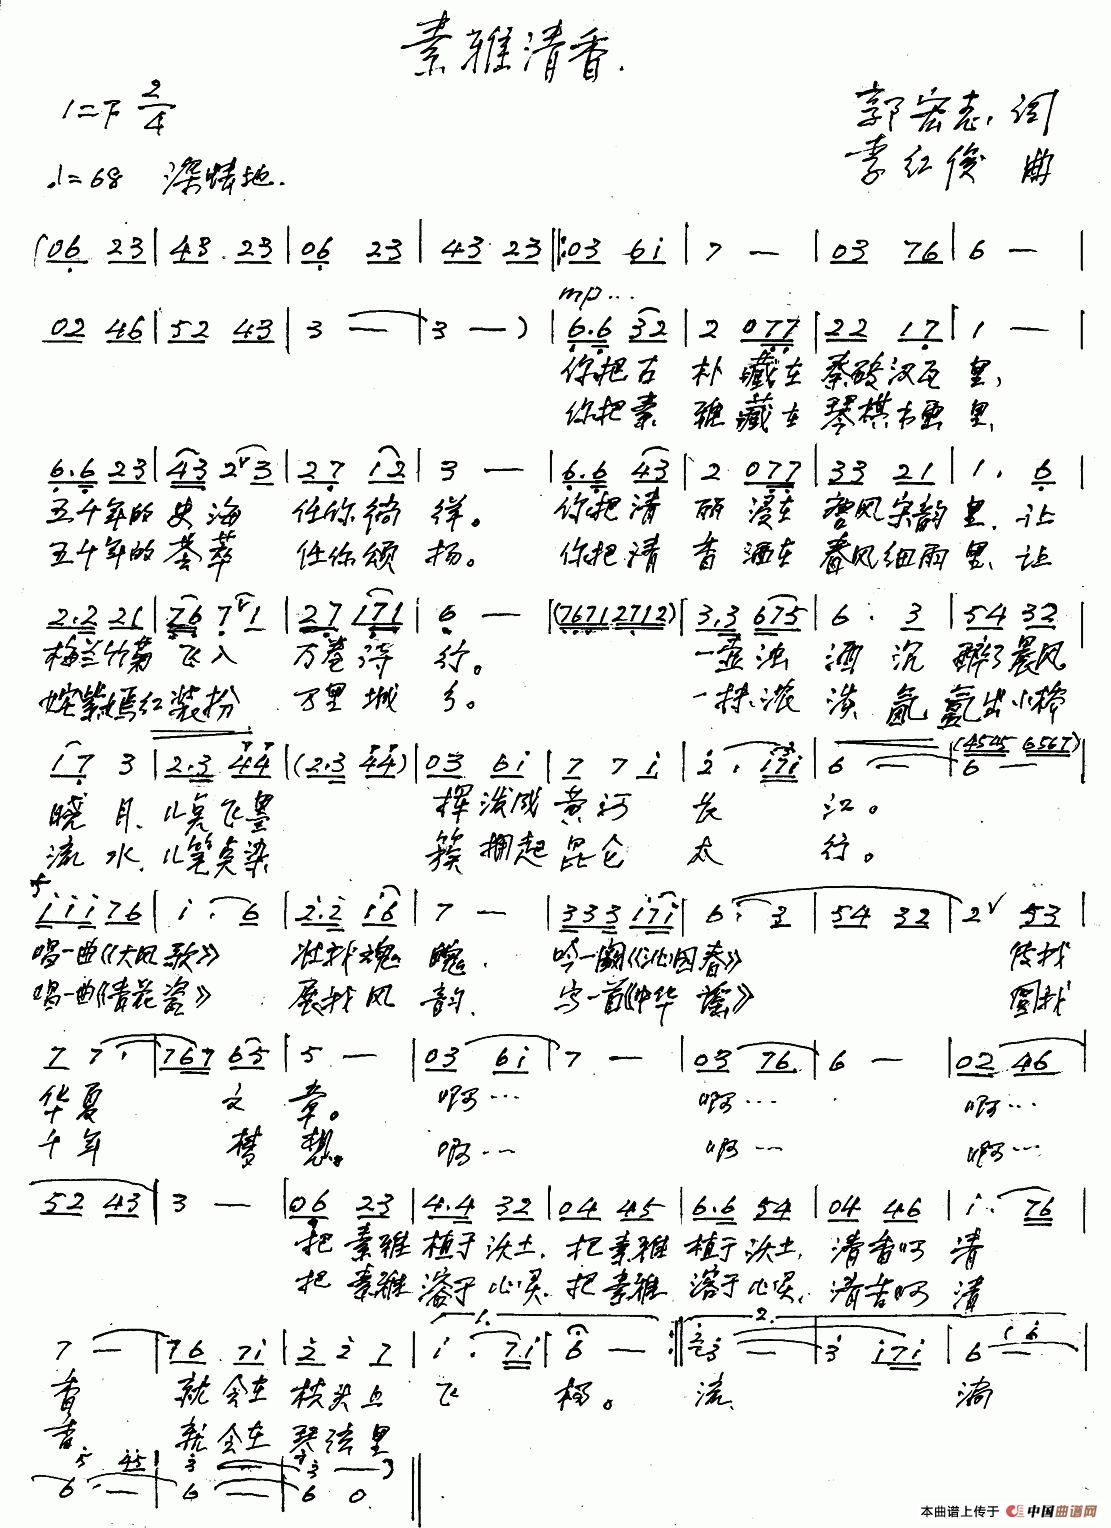 素雅清香.
1=F 2/4
郭宏志 词
♩=68 深情地.
李红俊 曲
(06 23 | 43 23 | 06 23 | 43 23 ‖: 03 6i | 7 — | 03 76 | 6 — |
mp...
02 46 | 52 43 | 3 — | 3 — ) | 6.6 32 | 2 077 | 22 17 | 1 — |
你把古朴藏在秦砖汉瓦里,
你把素雅藏在琴棋书画里,
6.6 23 | 43 2∨3 | 27 12 | 3 — | 6.6 43 | 2 077 | 33 21 | 1. 6 |
五千年的史海 任你徜徉。 你把清丽浸在唐风宋韵里、让
五千年的荟萃 任你颂扬。 你把清香洒在春风细雨里、让
2.2 21 | 76 7∨1 | 27 171 | 6 — | (76712712) | 3.3 675 | 6. 3 | 54 32 |
梅兰竹菊飞入 万卷诗行。 一壶浊酒沉醉了晨风
姹紫嫣红装扮 万里城乡。 一抹浓 氤氲出小桥
i7 3 | 2.3 44 | (2.3 44) | 03 6i | 7 7 i | 2. i7i | 6 — | 6 — |
(4545 6567)
晓月、 飞墨 挥泼成黄河长江。
流水、 染 簇拥起昆仑太行。
iii76 | i. 6 | 2.2 i6 | 7 — | 333 i7i | 6. 3 | 54 32 | 2∨ 53 |
唱一曲《大风歌》 壮我魂魄. 吟一阕《沁园春》
唱一曲《青花瓷》 展我风韵. 写一首《中华谣》 圆我
7 7. | 767 65 | 5 — | 03 6i | 7 — | 03 76 | 6 — | 02 46 |
华夏 文章。 啊… 啊… 啊…
千年 梦想。 啊… 啊… 啊…
52 43 | 3 — | 06 23 | 4.4 32 | 04 45 | 6.6 54 | 04 46 | i. 76 |
把素雅植于沃土, 把素雅植于沃土, 清香啊清
把素雅溶于心灵, 把素雅溶于心灵, 清香啊清
1. 2.
7 — | 76 7i | 2 2 7 | i. 7i | 6 — :‖ 3 — | 3 i7i | 6 — |
香 就会在枝头上飞扬。 流 淌
香 就会在琴弦里
6. — | 6 — | 6 0 ‖
本曲谱上传于 中国曲谱网